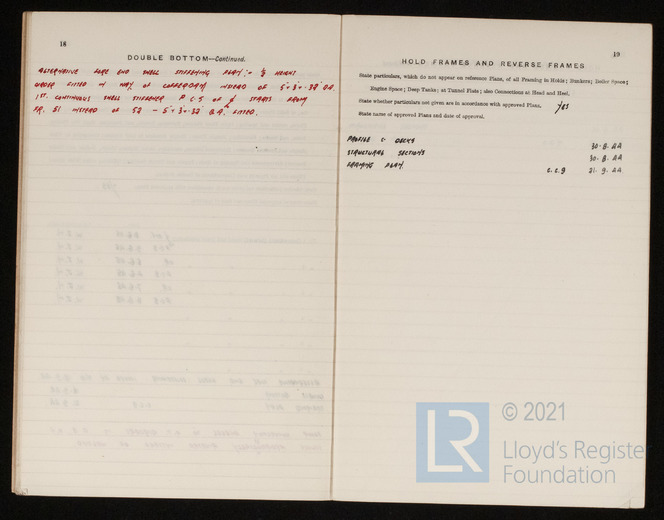 18
DOUBLE BOTTOM—Continued.
ALTERNATIVE FORE END SHELL STIFFENING PLAN:- ½ HEIGHT
UNDER FITTED IN WAY OF COFFERDAM INSTEAD OF 5"x3"x.32" O.A.
1ST. CONTINUOUS SHELL STIFFENER P & S OF ₵ STARTS FROM
FR. 51 INSTEAD OF 52 - 5"x3"x.32" O.A. FITTED.
19
HOLD FRAMES AND REVERSE FRAMES
State particulars, which do not appear on reference Plans, of all Framing in Holds; Bunkers; Boiler Space;
Engine Space; Deep Tanks; at Tunnel Flats; also Connections at Head and Heel.
State whether particulars not given are in accordance with approved Plans. Yes
State name of approved Plans and date of approval.
PROFILE & DECKS 30.8.44
STRUCTURAL SECTIONS 30.8.44
FRAMING PLAN. 21.9.44
© 2021
LR
Lloyd's Register
Foundation